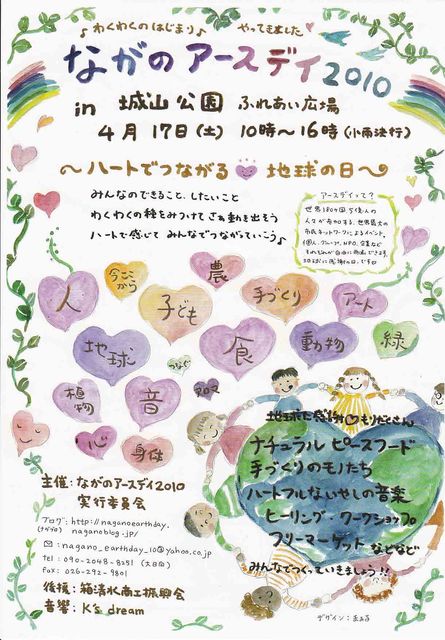 ♪わくわくのはじまり♪ やってきました
ながの アースデイ 2010
in 城山公園 ふれあい広場
4月17日(土) 10時〜16時(小雨決行)
〜ハートでつながる 地球の日〜
みんなのできること、したいこと
わくわくの種をみつけて さぁ動き出そう
ハートで感じて みんなでつながっていこう♪
アースデイって?
世界180ヶ国、5億人の
人々が参加する、世界最大の
市民ネットワークによるイベント。
個人、グループ、NPO、企業など
それぞれが自由に参加できます。
地球に感謝の日、です
人
今ここから
農
子ども
手づくり
アート
地球
つなぐ
食
動物
緑
植物
音
心
身体
地球に感謝♡もりだくさん
ナチュラル ピースフード
手づくりのモノたち
ハートフルないやしの音楽
ヒーリング・ワークショップ
フリーマーケット などなど
みんなでつくっていきましょう!!
主催:ながのアースデイ2010
実行委員会
ブログ:http://naganoearthday.
(さがブロ) naganoblog.jp/
✉:nagano_earthday_10@yahoo.co.jp
tel:090-2048-8251 (太田向)
fax:026-292-9801
後援:箱清水商工振興会
音響:K's dream
デザイン: